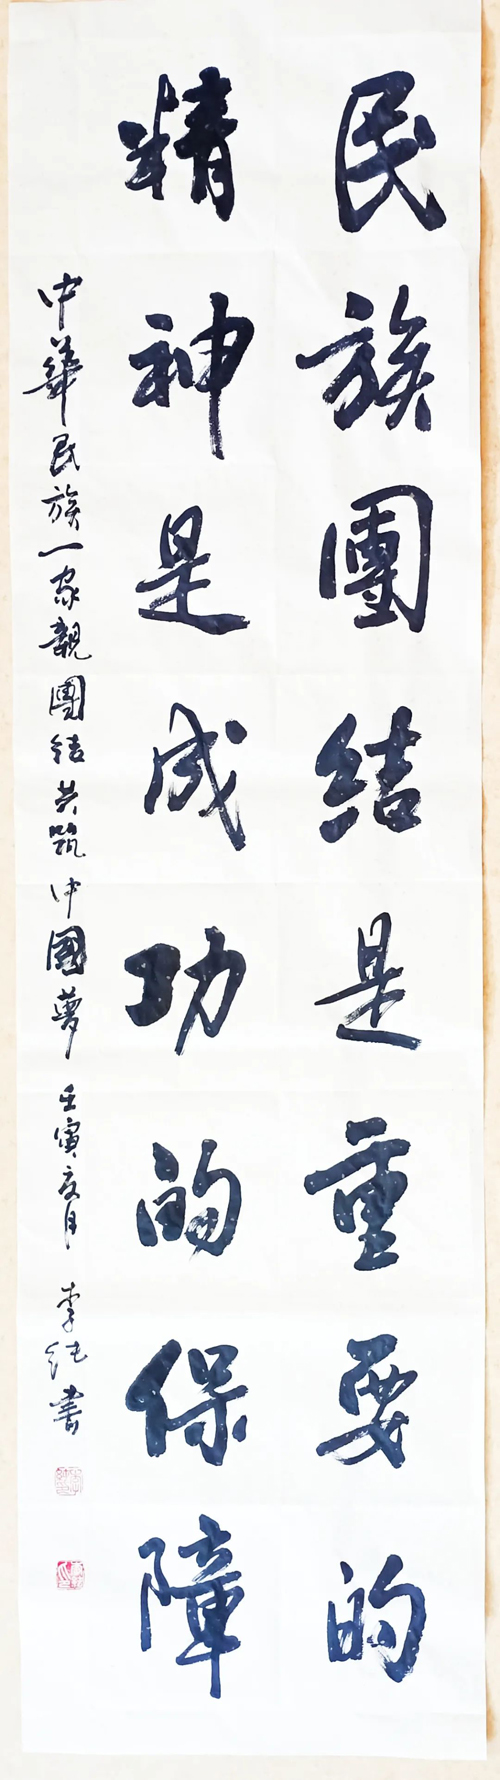 民族團结是重要的
精神是成功的保障
中華民族一家親團结共筑中國夢 壬寅夏月 李纯書